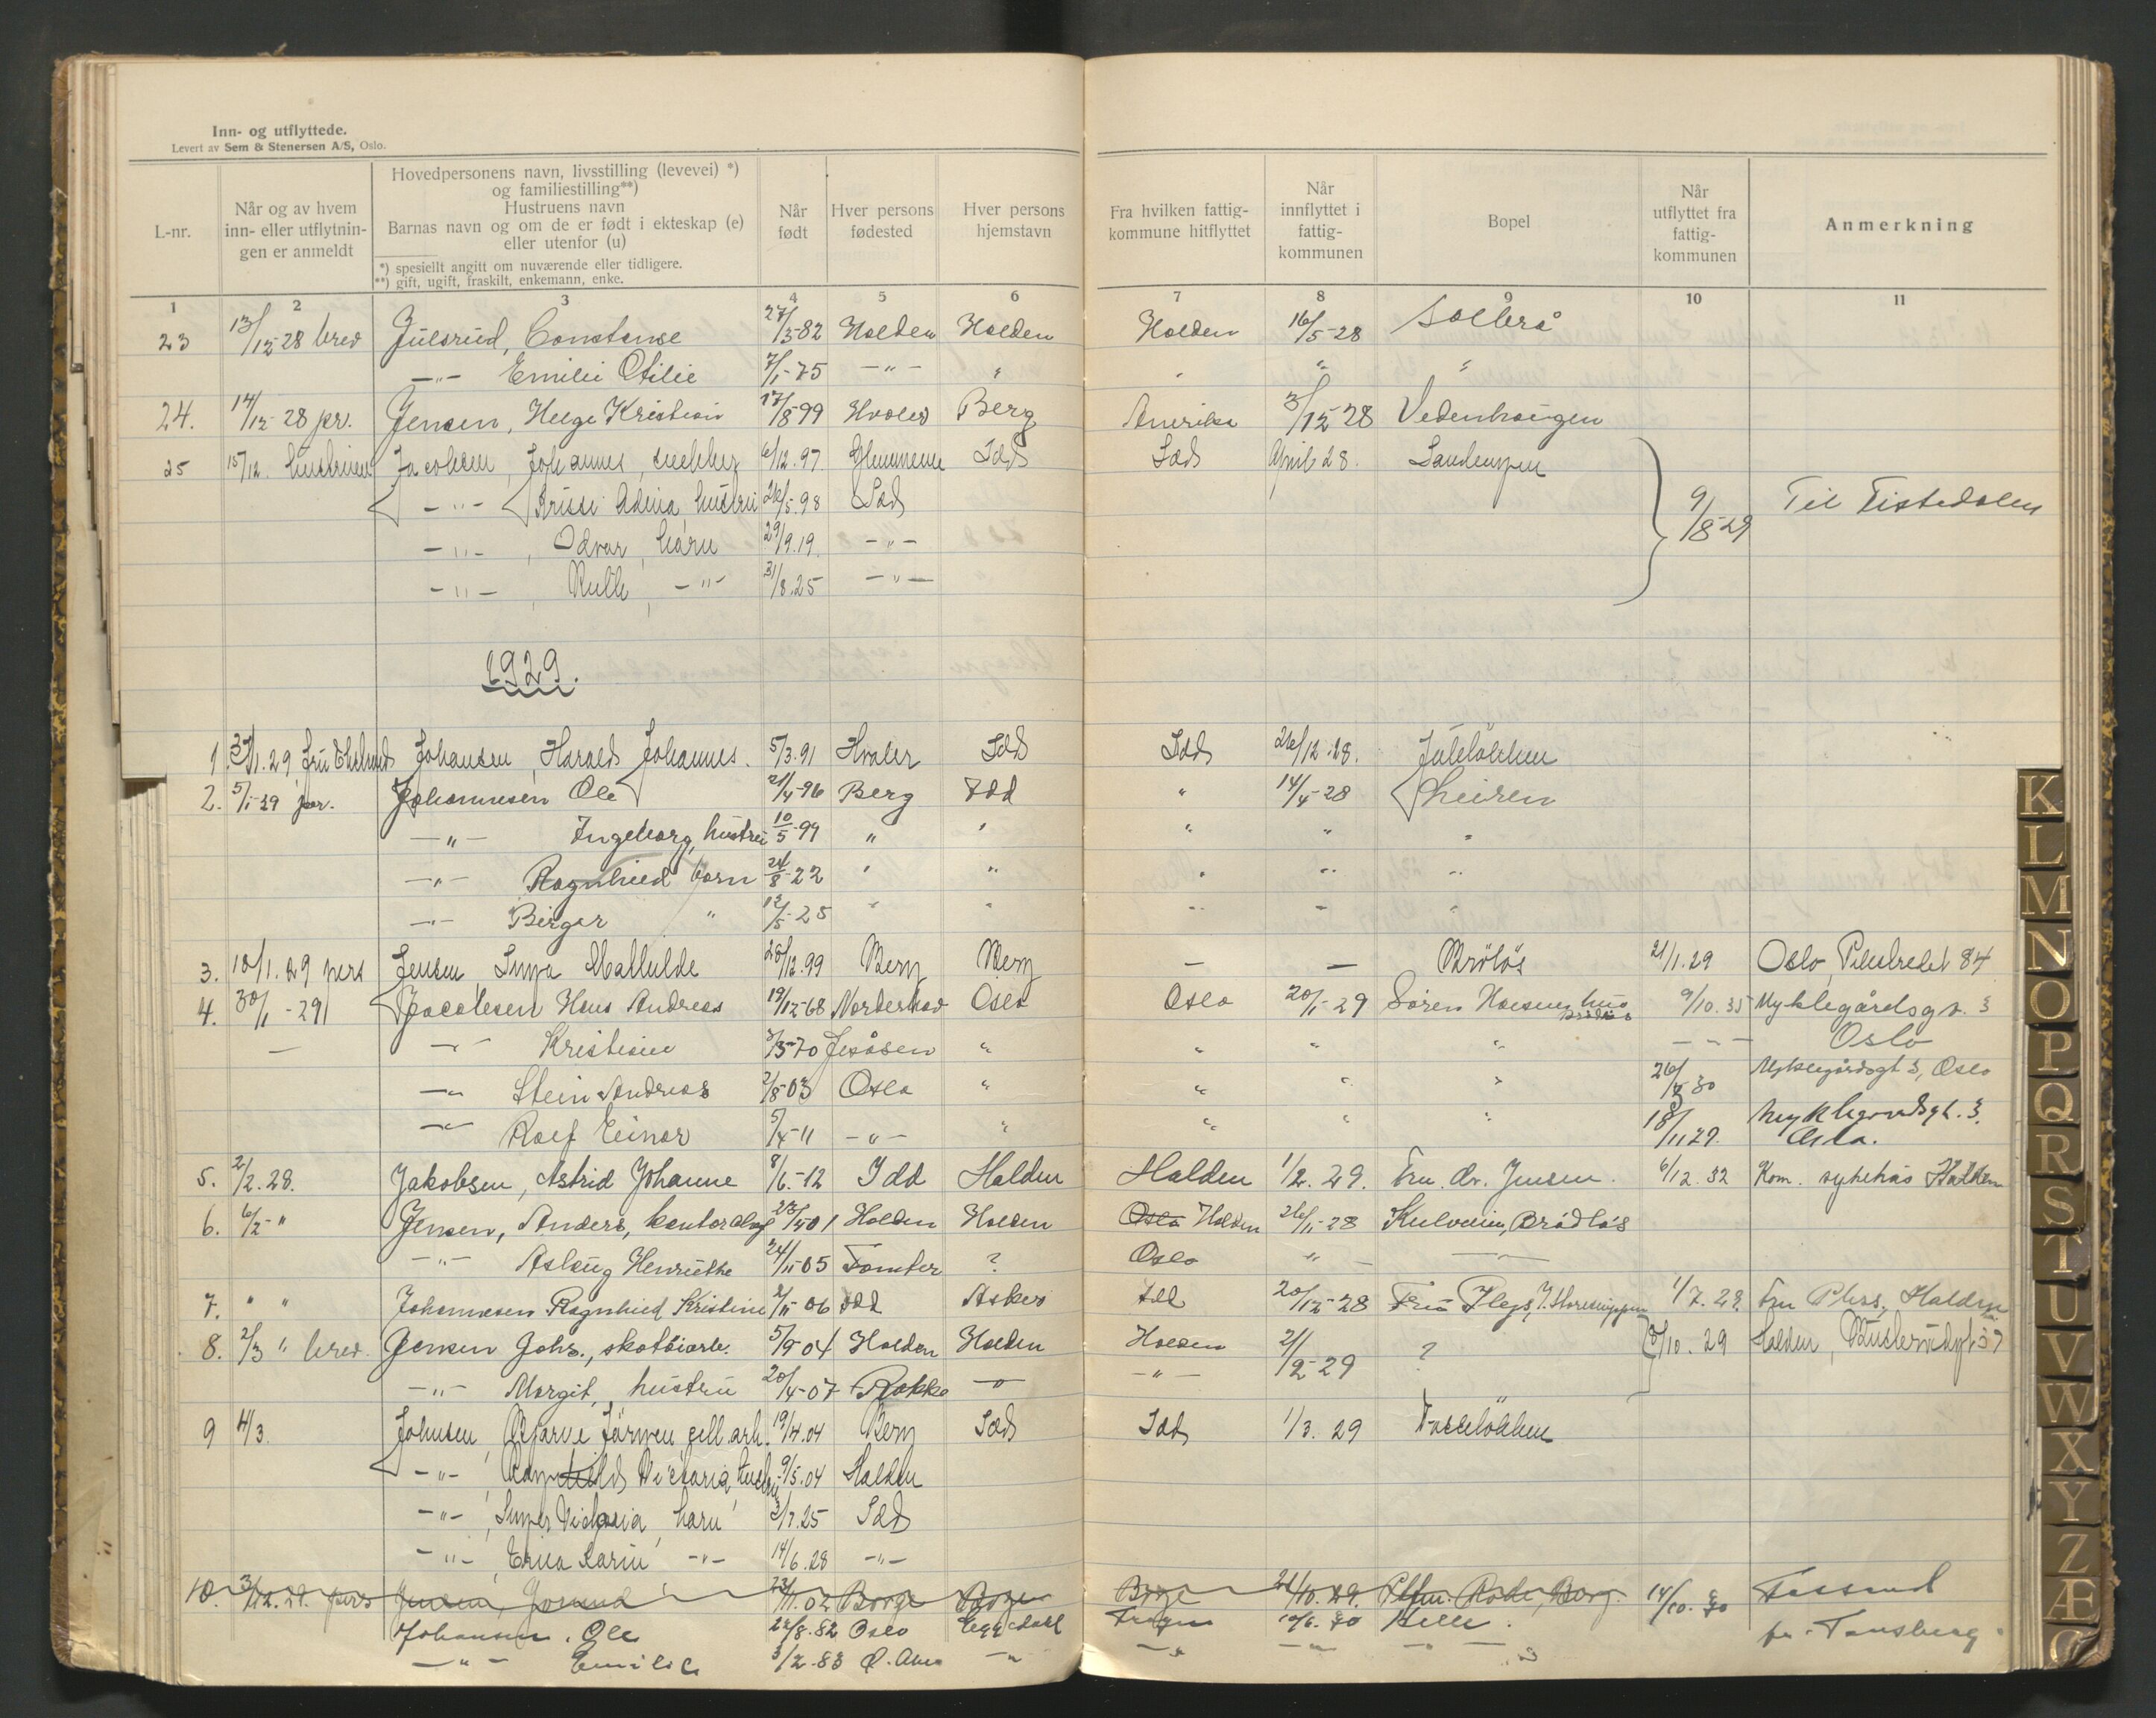 Inn- og utflyttede.
Levert av Sem & Stenersen A/S, Oslo.
L-nr.
Når og av hvem inn- eller utflytnin- gen er anmeldt
Hovedpersonens navn, livsstilling (levevei) *) og familiestilling**)
Hustruens navn
Barnas navn og om de er født i ekteskap (e) eller utenfor (u)
*) spesiellt angitt om nuværende eller tidligere.
**) gift, ugift, fraskilt, enkemann, enke.
Når født
Hver persons fødested
Hver persons hjemstavn
Fra hvilken fattig- kommune hitflyttet
Når innflyttet i fattig- kommunen
Bopel
Når utflyttet fra fattig- kommunen
Anmerkning
1 2 3 4 5 6 7 8 9 10 11
23 13/12-28 brev Julsrud, Constanse 27/3-82 Halden Halden Halden 16/5-28 Solbrå
-"- Emilie Otilie 7/1-75 -"- " " " "
24. 14/12-28 pr. Jensen, Helge Kristian 17/8-99 Hvaler Berg Amerika 3/12-28 Vedenhaugen
25 15/12. hustruen Jacobsen, Johannes, snekker 6/12.97 Glemmene Idd Idd April 28.
-"- Adena hustru 26/5.98 Idd 9/8-29 Til Tistedalen
-"-, Odvar, barn 29/9.19. -"-
-"-, Ruth, -"- 31/8.25 -"-
1929.
1. Johansen, Harald Johannes. 5/3.91 Hvaler Idd Idd 26/12.28. Juleløkken
2. 5/1-29 per. Johannesen Ole 21/4-96 Berg Idd " 14/4-28 Leiren
-"- Ingeborg, hustru 10/5-99 " " " " "
-"- Ragnhild barn 24/8-22 " " " " "
-"- Birger " 12/5-25 " " " " "
3. 10/1.29 pers Jensen, Inga Mathilde 28/12.99 Berg Berg — — Brödlös 21/1.29 Oslo, Pilestredet 84
4. 30/1-29 Jacobsen Hans Andreas 19/12-68 Norderhov Oslo Oslo 20/1-29 Sören Hansens hus 9/10.35 Myklegårdsgt. 3
— -"- Kristine 3/3-70 " " " " -"- Oslo
-"- Stein Andreas 2/8-03 Oslo " " " " Myklegårdsgt 3, Oslo
-"- Rolf Einar 5/4-11 -"- " " " " 18/11 29. Myklegårdsgt. 3. Oslo.
5. 2/2.28. Jakobsen, Astrid Johanne 8/6.-12 Idd Halden Halden 1/2.29. Fru. dr. Jensen. 6/12.32 Kom. sykehus Halden
6. 6/2-" Jensen, Anders, Halden Halden Oslo Halden 26/11-28 Brödlös
-"- Aslaug Henriette 24/11-05 Tomter ? Oslo " —"—
7. " " Johannesen Ragnhild Kristine 2/11-06 Idd Asker Idd 20/12-28 1/7.29. Halden
8. 2/3 " brev. Jensen Johs., skotöiarb. 5/9-04 Halden Halden Halden 2/2-29 ? /10.29 Halden,
-"- Margit, hustru 20/4-07 Rokke -"- -"-
9 4/3. Johnsen, Bjarne 19/4.04 Berg Idd Idd 1/3.29
-"-, Ragnhild Victoria, 9/5.04 Halden
-"-, Inger Victoria, barn 3/7.25 Idd
-"-, Erna Karin -"- 14/6.28 -"-
10. 3/12.29. pers Jensen, 23/11.02 Borge Borge Borge 21/10.29. Berg. 14/10.30
Johansen, Ole 22/8.82 Oslo 10/6.30 pr. Tønsberg
-"- Emilie 3/2-83 Ø. Aker -"- -"- -"- -"- "
K
L
M
N
O
P
Q
R
S
T
U
V
W
X
Y
Z
Æ